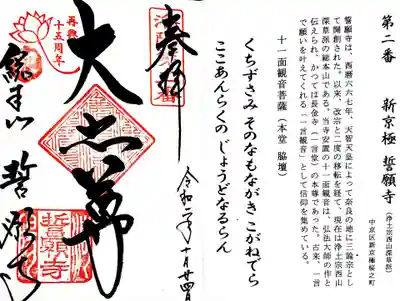 第二番 新京極 誓願寺
（浄土宗西山深草派）
中京区新京極桜之町
誓願寺は、西暦六六七年、天智天皇によって奈良の地に三論宗とし
て開創された。以来、改宗と二度の移転を経て、現在は浄土宗西山
深草派の総本山である。当寺安置の十一面観音は、弘法大師の作と
伝えられ、かつては長金寺（一言堂）の本尊であった。古来、一言
で願いを叶えてくれる「一言観音」として信仰を集めている。
十一面観音菩薩（本堂 脇壇）
くちずさみ そのなもながき こがねでら
ここあんらくの じょうどなるらん
奉拝
令和二年 十月廿四日
大悲華
再興
十五周年
総本山 誓願寺
誓願寺